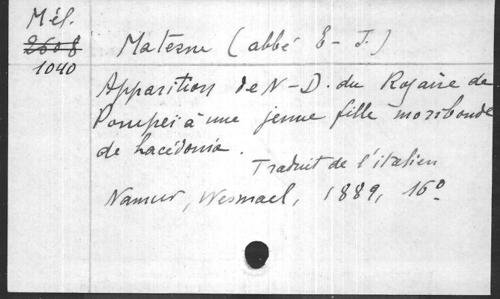 Mél.
2608
1040
Materne (abbé E-J.)
Apparition de N-D. du Rosaire de
Pompei à une jeune fille moribonde
de Lacédonia.
Traduit de l'italien
Namur, Wesmael, 1889, 16°